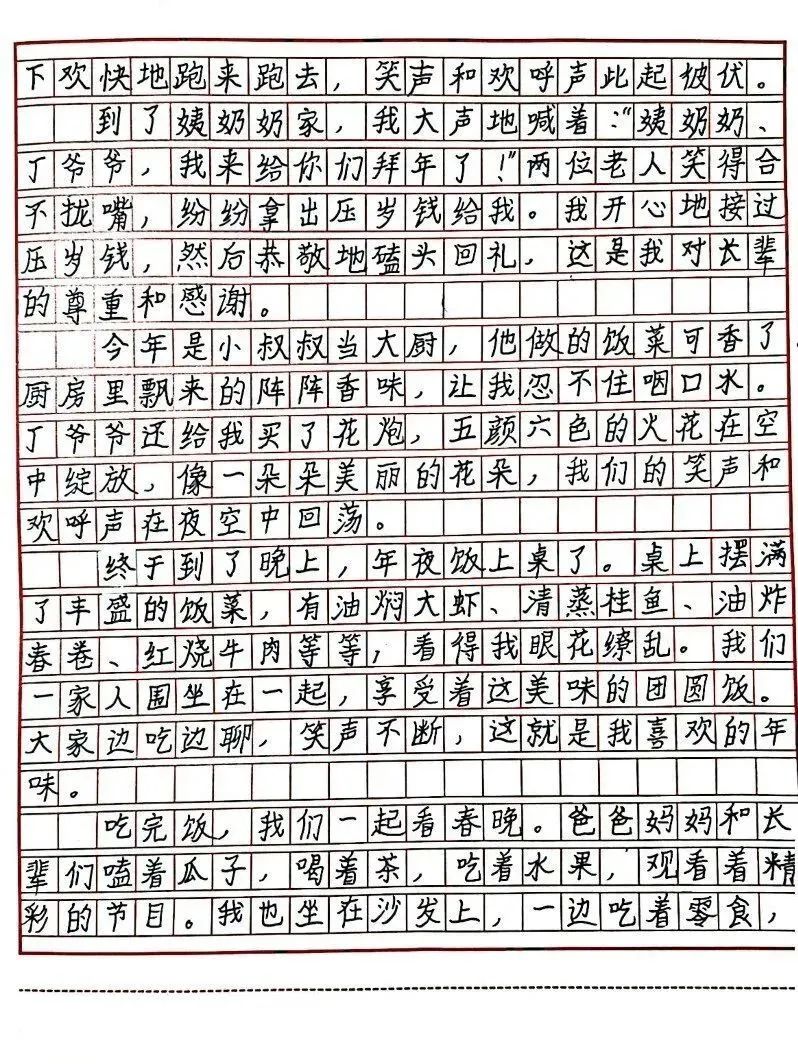 下欢快地跑来跑去，笑声和欢呼声此起彼伏。
到了姨奶奶家，我大声地喊着："姨奶奶、
丁爷爷，我来给你们拜年了！"两位老人笑得合
不拢嘴，纷纷拿出压岁钱给我。我开心地接过
压岁钱，然后恭敬地磕头回礼，这是我对长辈
的尊重和感谢。
今年是小叔叔当大厨，他做的饭菜可香了
厨房里飘来的阵阵香味，让我忍不住咽口水。
丁爷爷还给我买了花炮，五颜六色的火花在空
中绽放，像一朵朵美丽的花朵，我们的笑声和
欢呼声在夜空中回荡。
终于到了晚上，年夜饭上桌了。桌上摆满
了丰盛的饭菜，有油焖大虾、清蒸桂鱼、油炸
春卷、红烧牛肉等等，看得我眼花缭乱。我们
一家人围坐在一起，享受着这美味的团圆饭。
大家边吃边聊，笑声不断，这就是我喜欢的年
味。
吃完饭，我们一起看春晚。爸爸妈妈和长
辈们嗑着瓜子，喝着茶，吃着水果，观看着精
彩的节目。我也坐在沙发上，一边吃着零食，